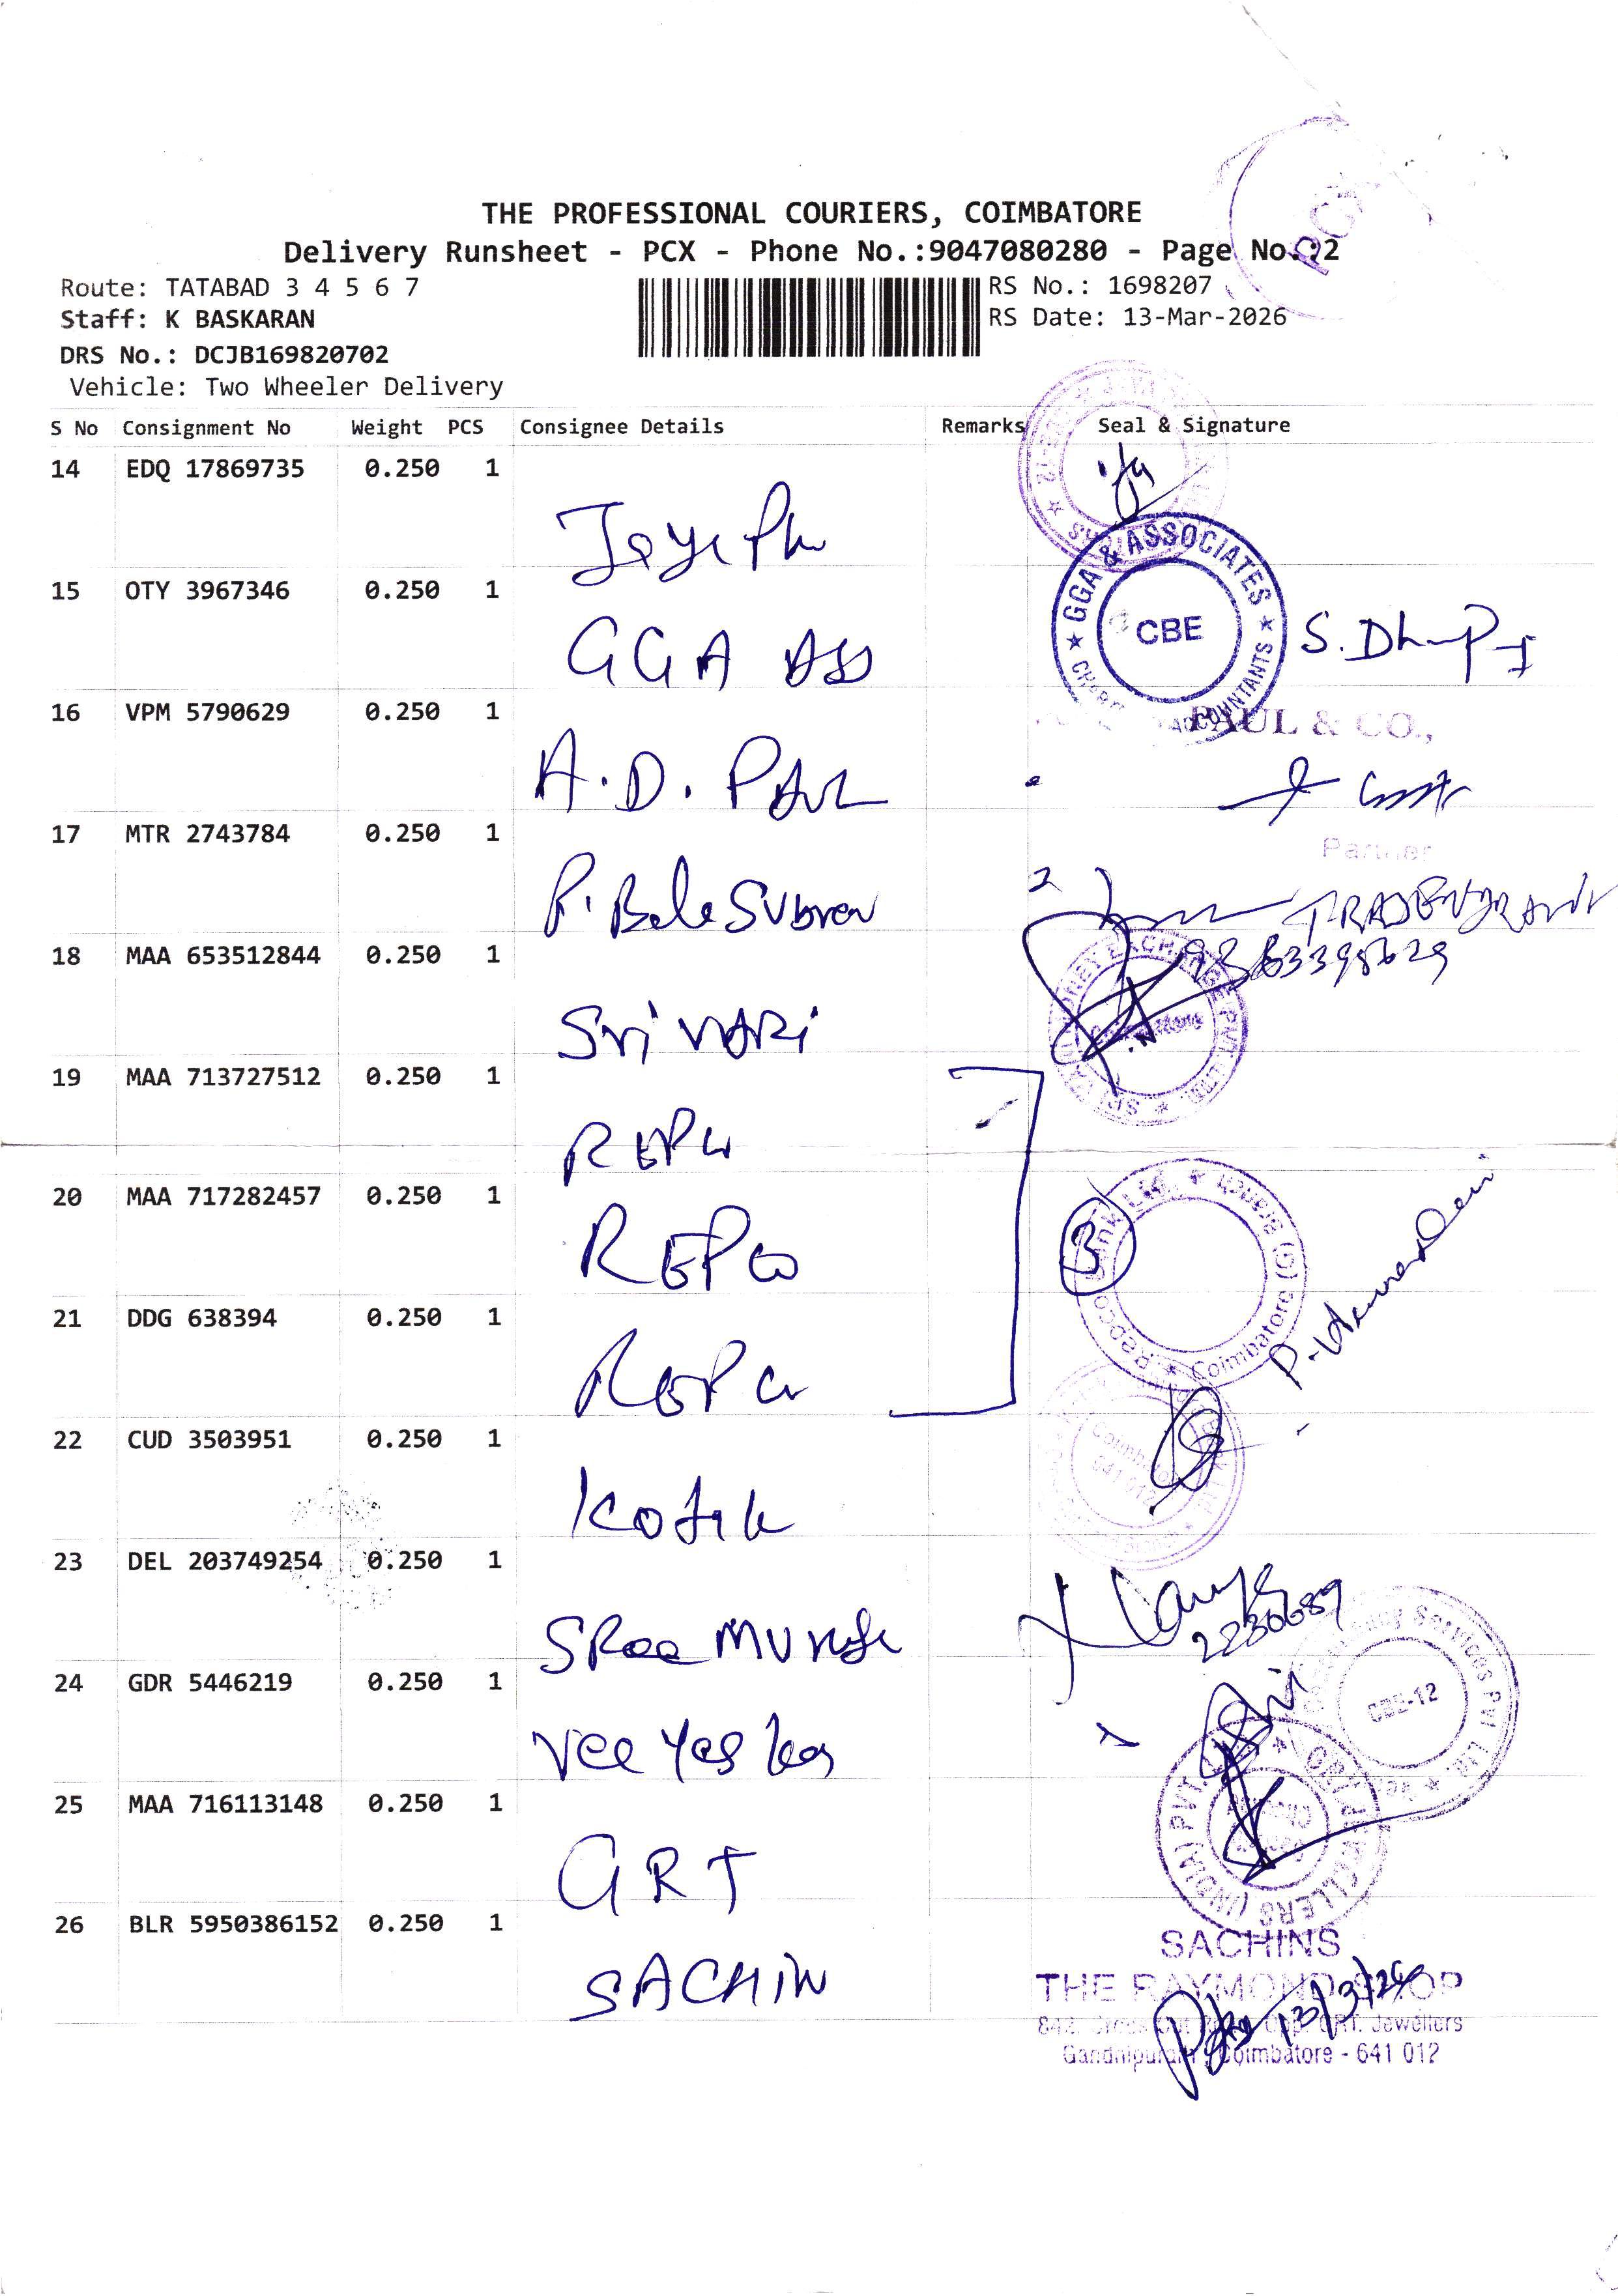 PCX
THE PROFESSIONAL COURIERS, COIMBATORE
Delivery Runsheet - PCX - Phone No.:9047080280 - Page No.:2
Route: TATABAD 3 4 5 6 7
RS No.: 1698207
Staff: K BASKARAN
RS Date: 13-Mar-2026
DRS No.: DCJB169820702
Vehicle: Two Wheeler Delivery
S No Consignment No Weight PCS Consignee Details Remarks Seal & Signature
14 EDQ 17869735 0.250 1
15 OTY 3967346 0.250 1
GGA & ASSOCIATES
CBE
GGA ASS
S. Dh
16 VPM 5790629 0.250 1
PAUL & CO.,
A.D. PAUL
17 MTR 2743784 0.250 1
Partner
P. BalaSubram
18 MAA 653512844 0.250 1
MONEY EXCHANGE PVT. LTD.
Sri VARI
19 MAA 713727512 0.250 1
REPCO
20 MAA 717282457 0.250 1
REPCO
3
Repco Bank Ltd., Coimbatore (S) Branch
21 DDG 638394 0.250 1
REPCO
22 CUD 3503951 0.250 1
Coimbatore
641 012
Kotak
23 DEL 203749254 0.250 1
Sree Muruga
2230689
24 GDR 5446219 0.250 1
Services Pvt Ltd.
CBE-12
Vee Yes
25 MAA 716113148 0.250 1
GRT JEWELLERS (INDIA) PVT.
GRT
26 BLR 5950386152 0.250 1
SACHIN
SACHINS
THE RAYMOND SHOP
13/3/26
Opp. GRT. Jewellers
Gandhipuram, Coimbatore - 641 012